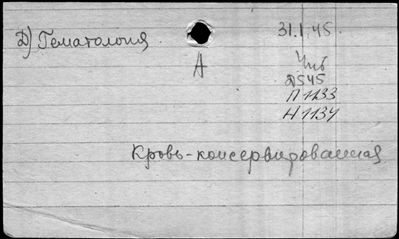 Д) Гематология
31.1.45.
А
Д545
П1133
Н1134
Кровь-консервированная